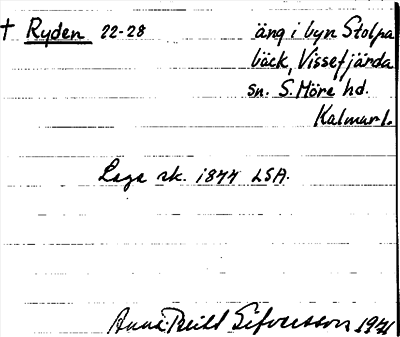 † Ryden 22-28 äng i byn Stolpa
bäck, Vissefjärda
sn. S. Möre hd.
Kalmar l.
Laga sk. 1877 LSA.
Anna 1971